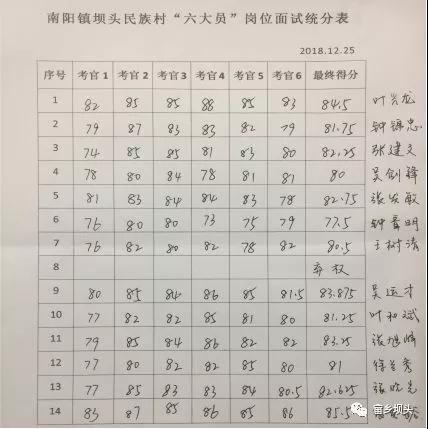 南阳镇坝头民族村“六大员”岗位面试统分表
2018.12.25
序号 考官1 考官2 考官3 考官4 考官5 考官6 最终得分
1 82 85 85 88 85 83 84.5 叶兴龙
2 79 87 83 83 82 79 81.75 钟锦忠
3 74 85 85 81 83 80 82.25 张建文
4 78 80 84 78 81 81 80 吴剑锋
5 81 83 84 84 83 78 82.75 张发敏
6 76 80 80 73 75 79 77.5 钟 明
7 76 82 80 82 78 82 80.5 王树清
8 弃权
9 80 85 84 86 85 81.5 83.875 吴运才
10 77 82 82 85 81 80 81.25 叶和斌
11 79 85 84 86 82 82 83.25 张旭
12 77 80 82 82 85 80 81 徐兰秀
13 77 85 83 83 84 80.5 82.625 张 先
14 83 87 85 86 85 86 85.5
富乡坝头